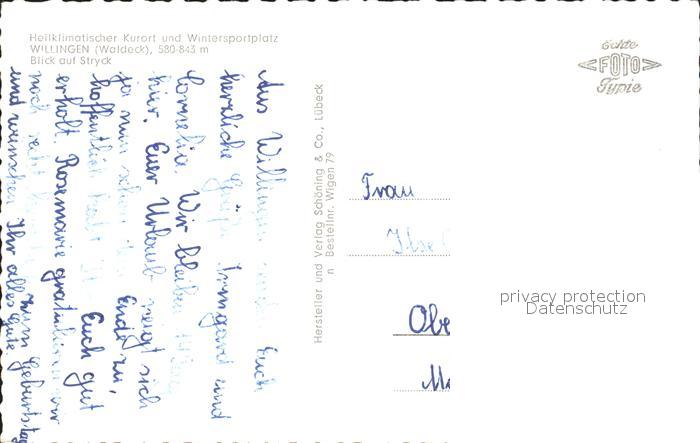 Heilklimatischer Kurort und Wintersportplatz
WILLINGEN (Waldeck), 580-843 m
Blick auf Stryck
Aus Willingen Euch
herzliche Grüße Irmgard und
Cornelia. Wir bleiben
hier. Euer Urlaub neigt sich
ja nun schon dem Ende zu,
hoffentlich habt Ihr Euch gut
erholt. Rosemarie gratulieren wir
noch recht zum Geburtstag
und wünschen Ihr alles Gute
Hersteller und Verlag Schöning & Co., Lübeck
n Bestellnr. Wigen 79
echte
FOTO
Typie
Frau
Ilse
Obe
privacy protection
Datenschutz